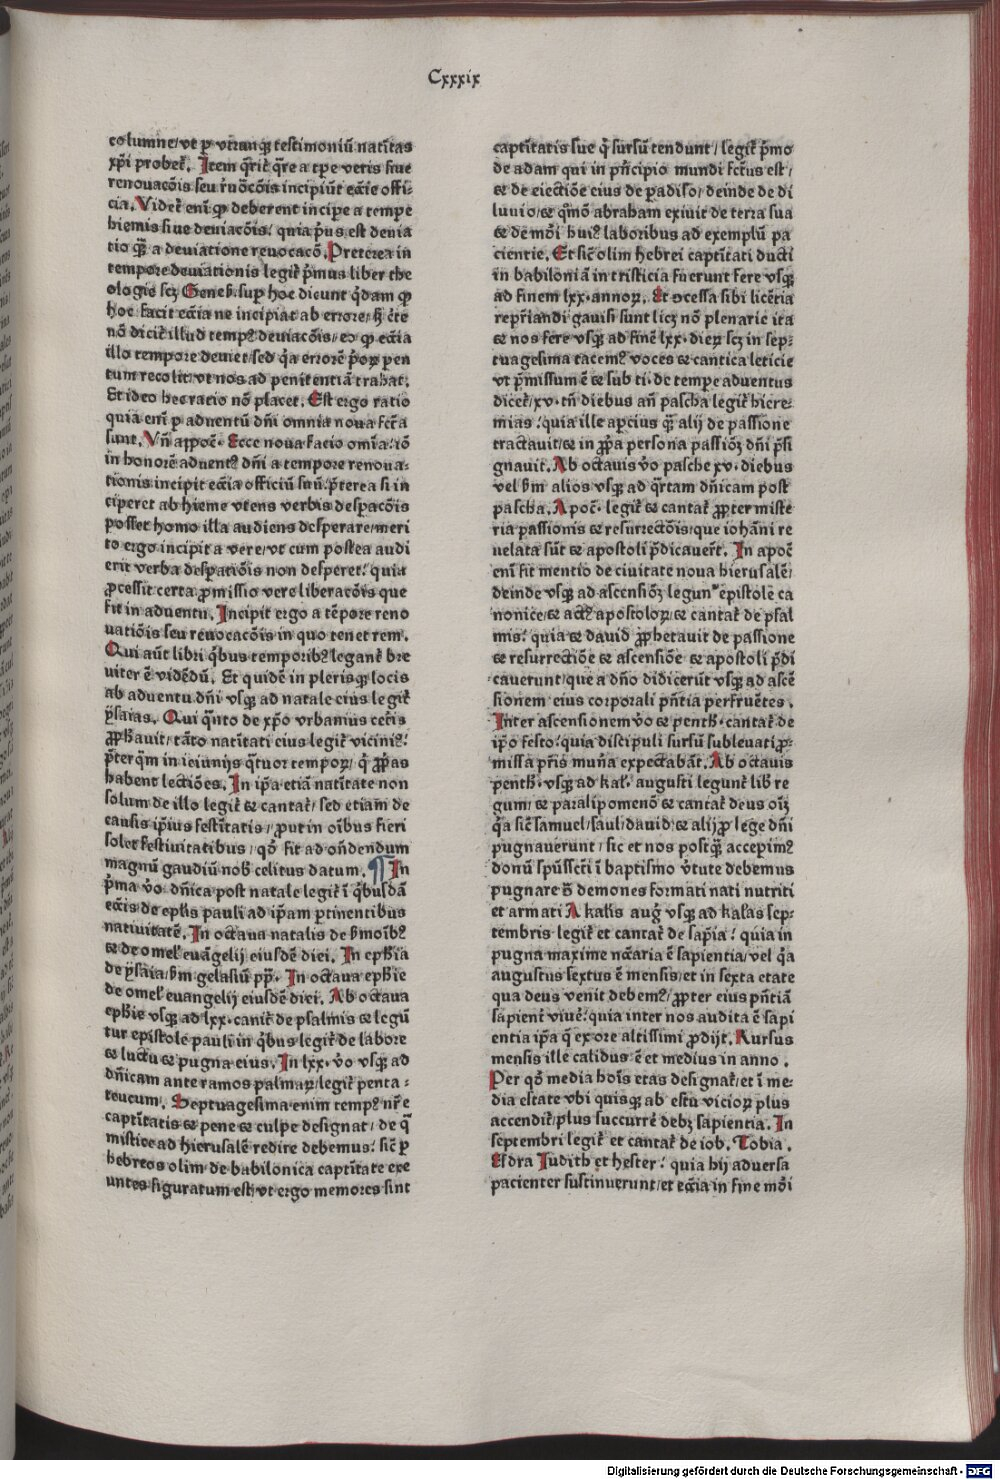 Cxxxix
columne/vt ꝑ vtranqꝫ testimoniū natiṽtas
xp̄i probet᷑. Item q̄rit᷑ q̄re a tp̄e vetis siue
renouacōis seu r̄uōcōis incipiūt ecc̄ie offi-
cia. Videt᷑ eniꝫ ꝙ deberent incipe a tempe
hiemis siue deuiacōis/ quia p̄us est deuia
tio qꝫ̄ a deuiatione reuocacō. Preterea in
tempore deuiationis legit᷑ p̄mus liber the
ologie scꝫ Geneẜ. sup hoc dicunt q̄dam ꝙ
hoc facit ecc̄ia ne incipiat ab errore/ ẜꝫ c̄te
nō dicit᷑ illud tempꝰ deuiacōis/ eo ꝙ ecc̄ia
illo tempore deuiet/ sed q̄a errorē p̄oꝝ pen
tum recolit/ vt nos ad penitentiā trahat.
Et ideo hec ratio nō placet. Est ergo ratio
quia eniꝫ ꝑ aduentū dn̄i omnia noua fc̄ta
sunt. Vn̄ appoc̄. Ecce noua facio om̄ia/ iō
in honorē aduentꝰ dn̄i a tempore renoua-
tionis incipit ecc̄ia officiū suū/ p̄terea si in
ciperet ab hieme vtens verbis despacōis
posset homo illa audiens desperare/ meri
to ergo incipit a vere/ vt cum postea audi
erit verba despatiōis non desperet/ quia
ꝓcessit certa ꝓmissio vere liberacōis que
fit in aduentu. Incipit ergo a tēpore reno
uatiōis seu reuocacōis in quo tenet rem.
Qui aūt libri q̄bus temporibꝰ legant᷑ bre
uiter ē vidēdū. Et quidē in plerisqꝫ locis
ab aduentu dn̄i vsqꝫ ad natale eius legit᷑
ysaias. Qui q̄nto de xp̄o vrbanius cet᷑is
ꝓph̄auit/ tāto natiṽtati eius legit᷑ viciniꝰ/
p̄terqꝫ̄m in ieiunijs q̄tuor tempoꝝ/ q̄ ꝓp̄as
habent lectiōes. In ip̄a etiā natiṽtate non
solum de illo legit᷑ ⁊ cantat᷑/ sed etiam de
causis ip̄ius festiṽtatis/ ꝓut in oiꝫbus fieri
solet festiuitatibus/ qō fit ad on̄dendum
magnū gaudiū nob̄ celitus datum. ¶ In
p̄ma v̄o dn̄ica post natale legit᷑ ī q̄busdā
ecc̄is de epl̄is pauli ad ip̄am ꝑtinentibus
natiuitatē. In octaua natalis de b̄moiꝫbꝰ
⁊ de omel᷑ euāgelij eiusdē diei. In eph̄ia
de ysaia/ ẜm gelasiū pp̄. In octaua eph̄ie
de omel᷑ euangelij eiusdē diei. Ab octaua
eph̄ie vsqꝫ ad lxx. canit᷑ de psalmis ⁊ legū
tur epistole pauli in q̄bus legit᷑ de labore
⁊ luctu ⁊ pugna eius. In lxx. v̄o vsqꝫ ad
dn̄icam ante ramos palmaꝝ/ legit᷑ penta-
teucum. Septuagesima enim tempꝰ nr̄e
captiṽtatis ⁊ pene ⁊ culpe designat/ de q̄
mistice ad hierusalē redire debemus/ sic̄ ꝑ
hebreos olim/ de babilonica captiṽtate exe
untes figuratum est/ vt ergo memores sint
captiṽtatis sue q̄ sursū tendunt/ legit᷑ p̄mo
de adam qui in pn̄cipio mundi fc̄tus est/
⁊ de eiectiōe eius de ꝑadiso/ deinde de di
luuio/ ⁊ qꝫ̄mō abraham exiuit de terra sua
⁊ de mōi huiꝰ laboribus ad exemplū pa
cientie. Et sic̄ olim hebrei captiṽtati ducti
in babiloniā in tristicia fuerunt fere vsqꝫ
ad finem lxx. annoꝝ. Et ꝯcessa sibi licētia
repr̄iandi gauisi sunt licꝫ nō plenarie ita
⁊ nos fere vsqꝫ ad finē lxx. dieꝝ scꝫ in sep-
tuagesima tacemꝰ voces ⁊ cantica leticie
vt p̄missum ē ⁊ sub ti. de tempe aduentus
dicet᷑/ xv. tn̄ diebus an̄ pascha legit᷑ hiere-
mias/ quia ille apcius qꝫ̄ alij de passione
tractauit/ ⁊ in ꝓp̄a persona passiōꝫ dn̄i p̄si
gnauit. Ab octauis v̄o pasche xv. diebus
vel ẜm alios vsqꝫ ad q̄rtam dn̄icam post
pascha. Apoc̄. legit᷑ ⁊ cantat᷑ ꝓpter miste
ria passionis ⁊ resurrectōis/ que iohāni re
uelata sūt ⁊ apostoli p̄dicauer̄t. In apoc̄
eniꝫ fit mentio de ciuitate noua hierusalē/
deinde vsqꝫ ad ascensiōꝫ legunt᷑ epistole ca
nonice/ ⁊ actꝰ apostoloꝝ/ ⁊ cantat᷑ de psal
mis/ quia ⁊ dauid ꝓphetauit de passione
⁊ resurrectiōe ⁊ ascensiōe ⁊ apostoli p̄di
cauerunt/ que a dn̄o didicerūt vsqꝫ ad ascē
sionem eius corporali pn̄tia perfruētes.
Inter ascensionem v̄o ⁊ penth̄. cantat᷑ de
ip̄o festo/ quia discipuli sursū subleuati ꝓ-
missa pr̄is mun̄a expectabāt. Ab octauis
penth̄. vsqꝫ ad kal̄. augusti legunt᷑ lib᷑ re
gum/ ⁊ paralipomenō ⁊ cantat᷑ deus oiꝫꝫ
q̄a sic̄ samuel/ saul/ dauid/ ⁊ alij ꝓ lege dn̄i
pugnauerunt/ sic et nos postqꝫ̄ accepimꝰ
donū spūssct̄i ī baptismo v̄tute debemus
pugnare ↄ̄ demones formati nati nutriti
et armati A kal̄is aug᷑ vsqꝫ ad kal̄as sep-
tembris legit᷑ et cantat᷑ de sap̄ia/ quia in
pugna maxime nc̄aria ē sapientia/ vel q̄a
augustus sextus ē mensis/ et in sexta etate
qua deus venit debemꝰ/ ꝓpter eius pn̄tiā
sapient᷑ viue᷑/ quia inter nos audita ē sapi
entia ip̄a q̄ ex ore altissimi ꝓdijt. Rursus
mensis ille calidus ē et medius in anno.
Per qō media hoiꝫs etas designat᷑/ et ī me-
dia estate vbi quisqꝫ ab estu vicioꝝ plus
accendit᷑/ plus succurre᷑ debꝫ sapientia. In
septembri legit᷑ et cantat᷑ de iob. Tobia.
Esdra Judith et hester/ quia hij aduersa
pacienter sustinuerunt/ et ecc̄ia in fine mōi
Digitalisierung gefördert durch die Deutsche Forschungsgemeinschaft - DFG